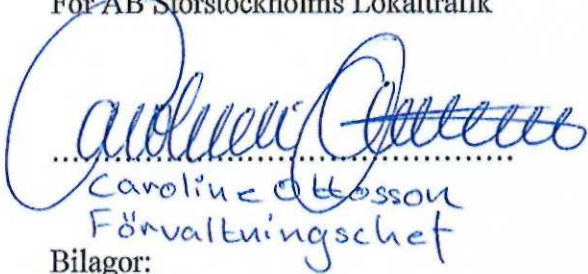 För AB Storstockholms Lokaltrafik
Caroline Ottosson
Förvaltningschef
Bilagor: